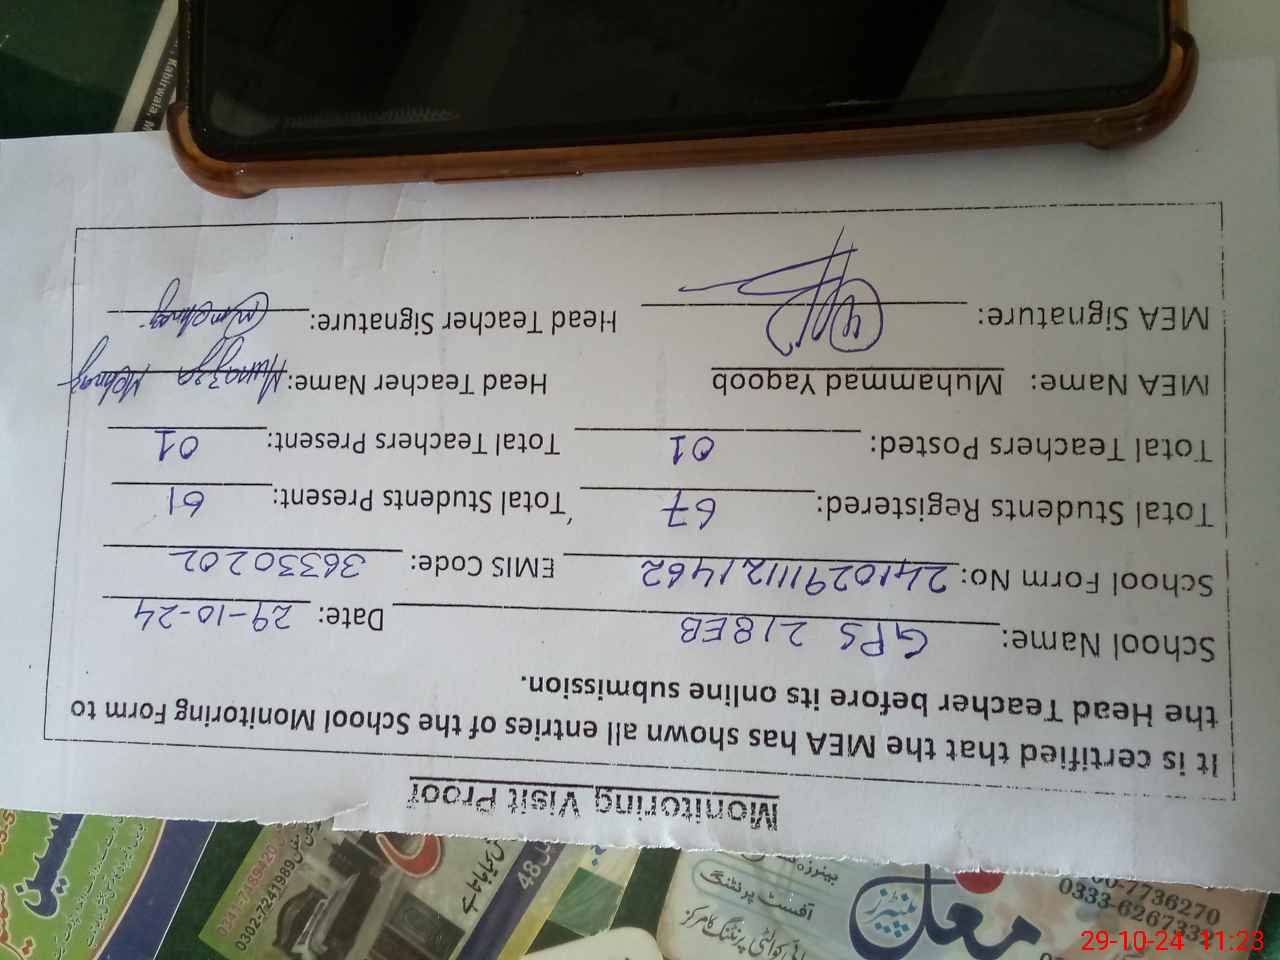 Monitoring Visit Proof
It is certified that the MEA has shown all entries of the School Monitoring Form to
the Head Teacher before its online submission.
School Name: GPS 218EB Date: 29-10-24
School Form No: 24102911121462 EMIS Code: 36330202
Total Students Registered: 67 Total Students Present: 61
Total Teachers Posted: 01 Total Teachers Present: 01
MEA Name: Muhammad Yaqoob Head Teacher Name: Munazza Mehnaz
MEA Signature: Head Teacher Signature:
Kabirwala
0302-7241989
48
آفسٹ پرنٹنگ
مغل
0333-
29-10-24 11:23